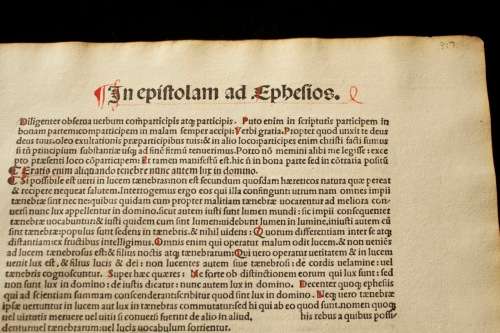 In epistolam ad Ephesios.
Diligenter obserua uerbum comparticipis atq; participis. Puto enim in scripturis participem in
bonam partem: comparticipem in malam semper accipi: Verbi gratia. Propter quod unxit te deus
deus tuus: oleo exultationis præ participibus tuis: & in alio loco: participes enim christi facti sumus
si tn̄ principium substantiæ usq; ad finē firmū tenuerimus. Porro nō memini alibi me legisse: ex
cepto præsenti loco cōparticipem: Et tamen manifestū est: hic ū in bona parte sed in cōtraria positū
Eratis enim aliquando tenebre nunc autem lux in domino.
Si possibile est uerti in lucem tænebras: non est secundum quosdam hæreticos natura quæ pereat
& recipere nequeat salutem. Interrogemus ergo eos qui illa confingunt: utrum nam omnes impii
tænebræ sint nec ne: quibus quidam cum propter malitiam tenebræ uocarentur ad meliora con-
uersi nunc lux appellentur in domino. sicut autem iusti sunt lumen mundi: sic impii consequenter
tænebræ uocabuntur: & iusti quidem cum sint lumen: uidebunt lumen in lumine, iniusti autem cū
sint tænebræ: populus sunt sedens in tænebris: & nihil uidens: Quorum differentiam inter se atq;
distantiam: ex fructibus intelligimus. Omnis enim qui operatur malum odit lucem: & non ueniēs
ad lucem tænebrosus est: & filius noctis atq; tænebrarum: Qui uero operatur ueritatem & uenit
ad lucem, lucis est, & filius lucis & dei: non lucentes autem siue tænebrosi: de cordis uelamine: uel
tænebris cognoscuntur. Super hæc quæres: Ne forte ob distinctionem eorum qui lux sunt: sed
non lux in domino: de iustis dicatur: nunc autem lux in domino. Decenter quoq; ephesiis
qui ad scientiam summam conscenderant: scribitur quod sint lux in domino. Neq; uero tænebræ
ipsæ nertuntur in lucem aut lux in tænebras commutatur: sed hi qui ab eo quod sunt, nomen quoq;
uel uirtutis meruere uel uitii si conuersi fuerunt de alio in aliud, his rebus a quibus possi
denturuel tænebrarum: uel lucis uocabulum sortientur.